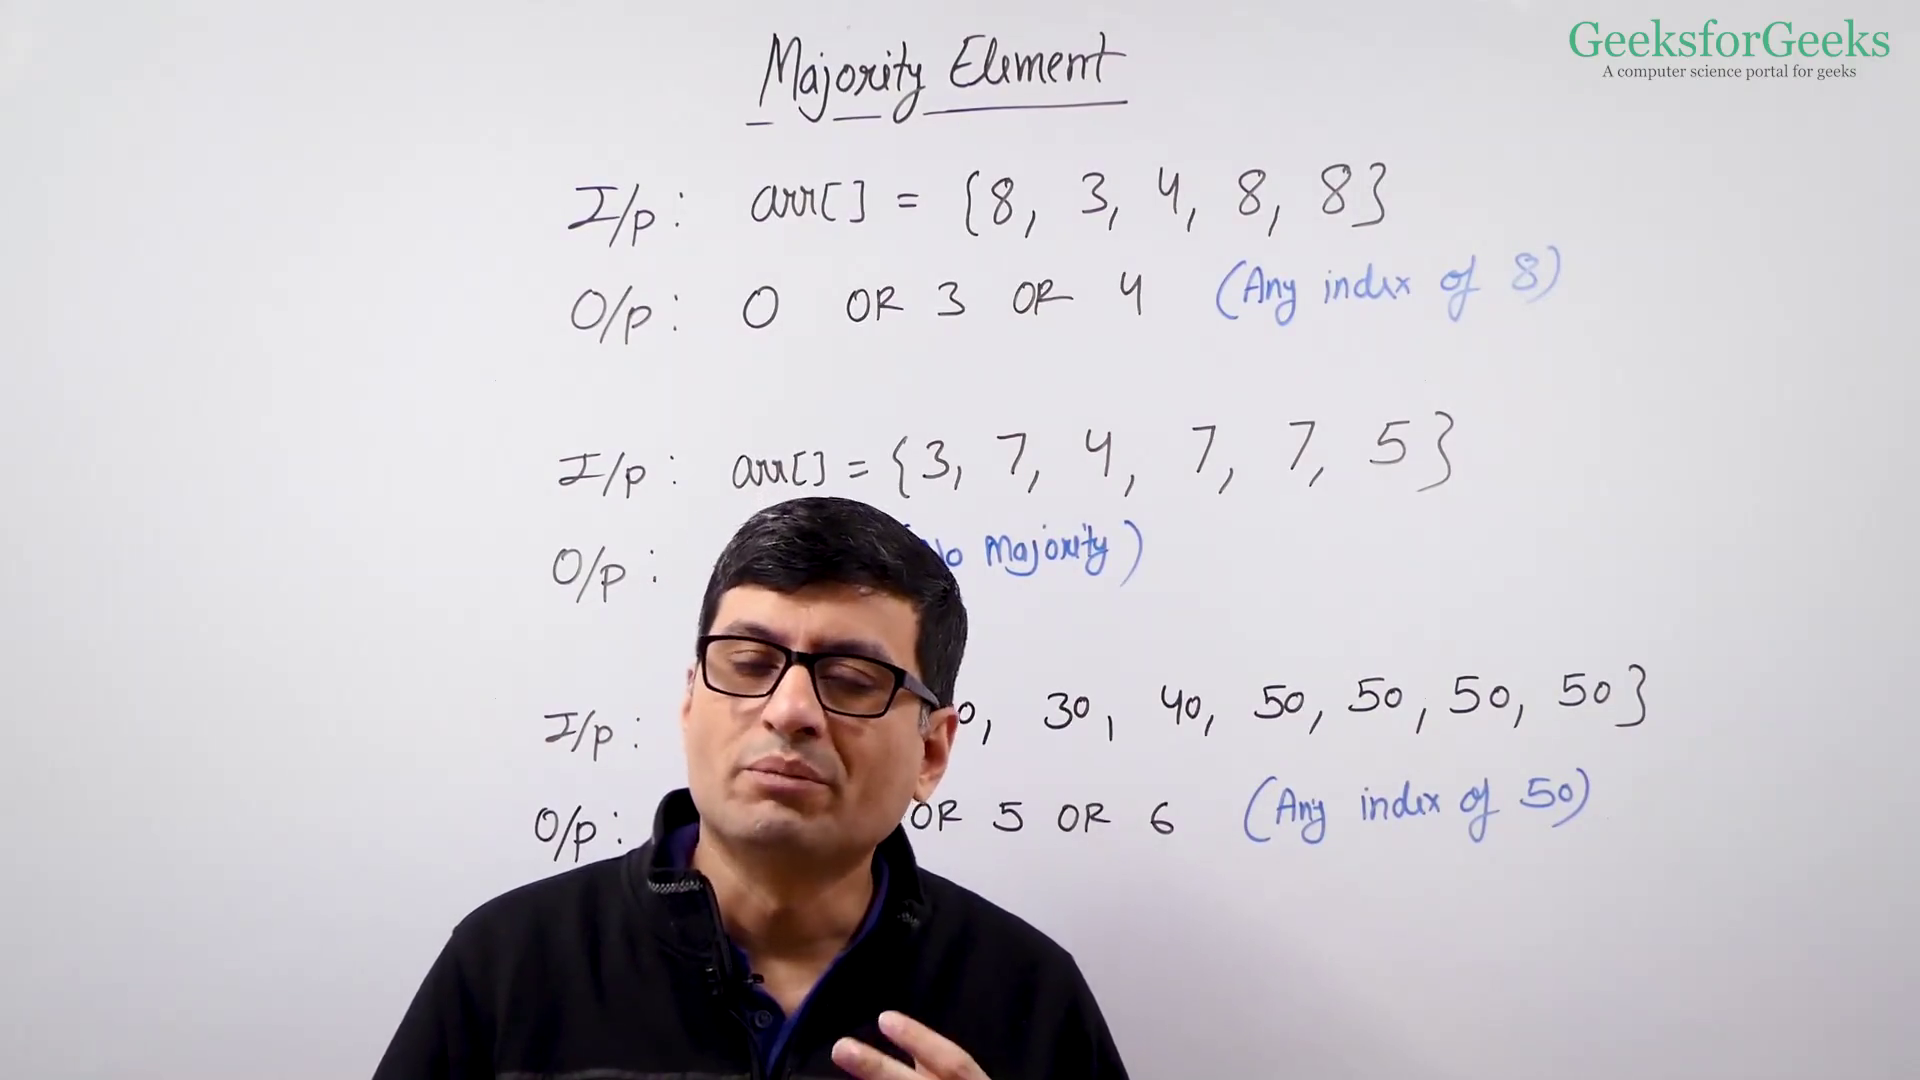 GeeksforGeeks
A computer science portal for geeks
Majority Element
I/p : arr[] = {8, 3, 4, 8, 8}
O/p : 0 OR 3 OR 4 (Any index of 8)
I/p : arr[] = {3, 7, 4, 7, 7, 5}
O/p : Majority)
I/p : 30, 40, 50, 50, 50, 50}
O/p : OR 5 OR 6 (Any index of 50)